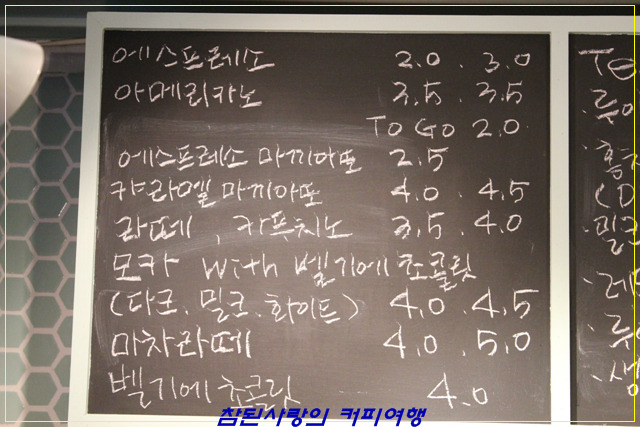 에스프레소 2.0 . 3.0
아메리카노 3.5 . 3.5
To Go 2.0
에스프레소 마끼아또 2.5
캬라멜 마끼아또 4.0 . 4.5
라떼 , 카푸치노 3.5 . 4.0
모카 with 벨기에 쵸콜릿
(다크, 밀크, 화이트) 4.0 . 4.5
마차라떼 4.0 . 5.0
벨기에 쵸콜릿 4.0
참된사랑의 커피여행